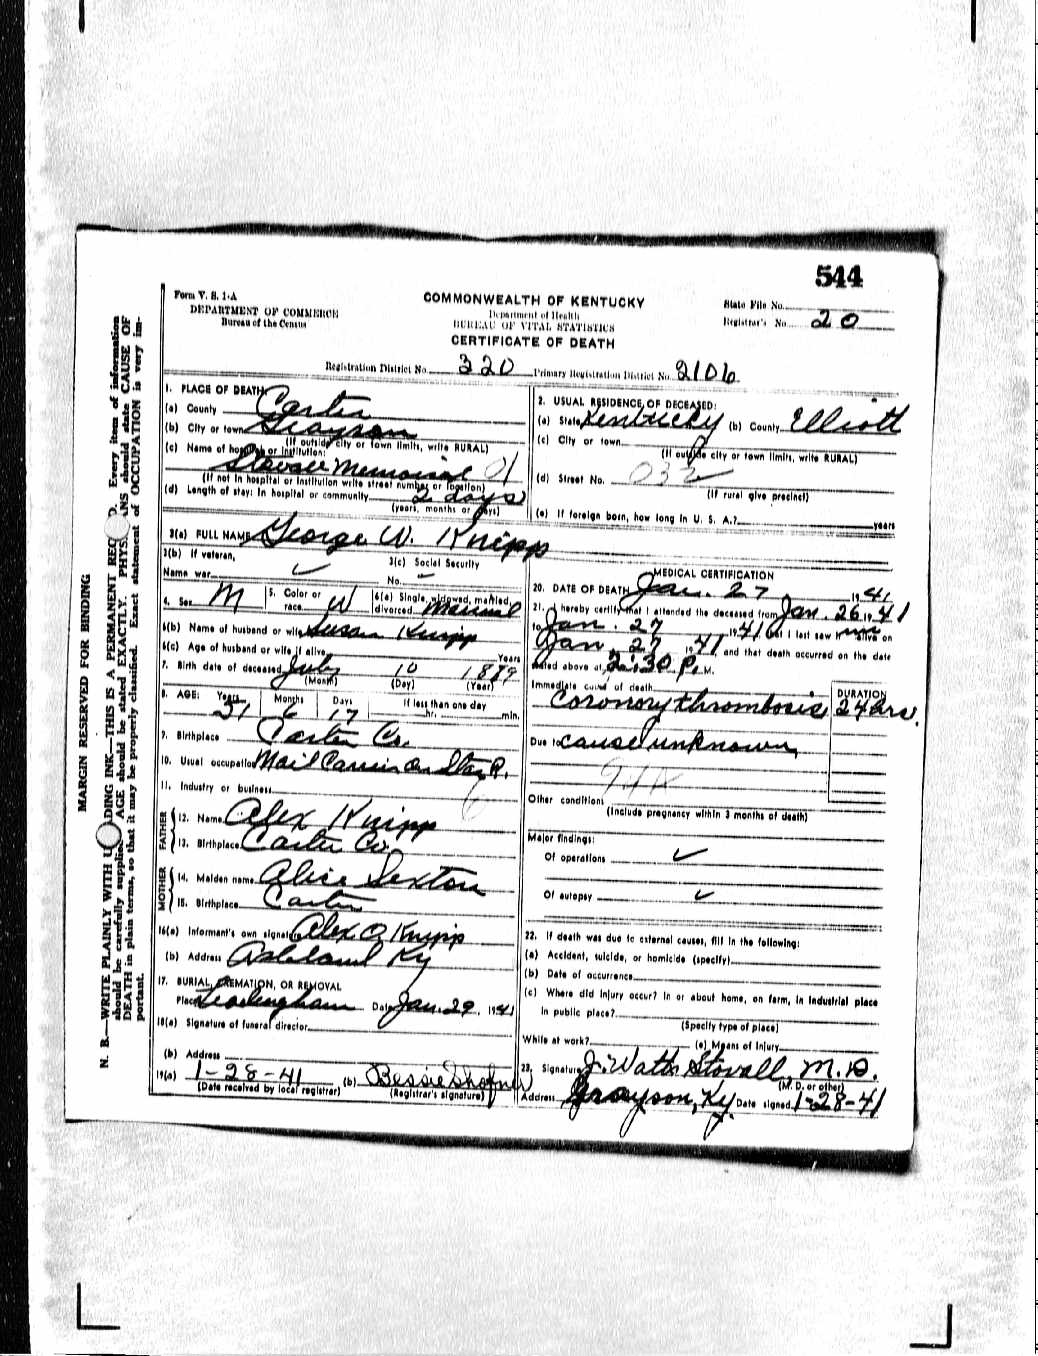 544
Form V. S. 1-A
DEPARTMENT OF COMMERCE
Bureau of the Census
COMMONWEALTH OF KENTUCKY
Department of Health
BUREAU OF VITAL STATISTICS
CERTIFICATE OF DEATH
State File No.
Registrar's No. 20
Registration District No. 320 Primary Registration District No. 2106
MARGIN RESERVED FOR BINDING
N. B.—WRITE PLAINLY WITH UNFADING INK—THIS IS A PERMANENT RECORD. Every item of information
should be carefully supplied. AGE should be stated EXACTLY. PHYSICIANS should state CAUSE OF
DEATH in plain terms, so that it may be properly classified. Exact statement of OCCUPATION is very im-
portant.
1. PLACE OF DEATH
(a) County Carter
(b) City or town Grayson
(If outside city or town limits, write RURAL)
(c) Name of hospital or institution:
Stovall Memorial 01
(If not in hospital or institution write street number or location)
(d) Length of stay: In hospital or community 2 days
(years, months or days)
2. USUAL RESIDENCE OF DECEASED:
(a) State Kentucky (b) County Elliott
(c) City or town
(If outside city or town limits, write RURAL)
(d) Street No. 032
(If rural give precinct)
(e) If foreign born, how long in U. S. A.? years
3(a) FULL NAME George W. Knipp
3(b) If veteran,
Name war
3(c) Social Security
No. –
4. Sex M 5. Color or race W 6(a) Single, widowed, married, divorced Married
6(b) Name of husband or wife Susan Knipp
6(c) Age of husband or wife if alive Years
7. Birth date of deceased July 10 1889
(Month) (Day) (Year)
8. AGE: Years 51 Months 6 Days 17 If less than one day
hr. min.
9. Birthplace Carter Co.
10. Usual occupation Mail Carrier on Star R.
11. Industry or business
FATHER
12. Name Alex Knipp
13. Birthplace Carter Co.
MOTHER
14. Maiden name Alice Sexton
15. Birthplace Carter
16(a) Informant's own signature Alex O Knipp
(b) Address Ashland Ky
17. BURIAL, CREMATION, OR REMOVAL
Place Date Jan. 29, 1941
18(a) Signature of funeral director
(b) Address
19(a) 1-28-41 (b) Bessie Shofner
(Date received by local registrar) (Registrar's signature)
MEDICAL CERTIFICATION
20. DATE OF DEATH Jan. 27 1941
21. I hereby certify that I attended the deceased from Jan. 26, 1941
to Jan. 27 1941 that I last saw him alive on
Jan. 27 1941 and that death occurred on the date
stated above at 2:30 P. M.
Immediate cause of death
Coronory thrombosis
DURATION
24 hrs.
Due to cause unknown,
94a
Other conditions
(Include pregnancy within 3 months of death)
Major findings:
Of operations
Of autopsy
22. If death was due to external causes, fill in the following:
(a) Accident, suicide, or homicide (specify)
(b) Date of occurrence
(c) Where did injury occur? In or about home, on farm, in industrial place
in public place?
(Specify type of place)
While at work? (e) Means of Injury
23. Signature J. Watts Stovall, M. D.
(M. D. or other)
Address Grayson, Ky. Date signed 1-28-41